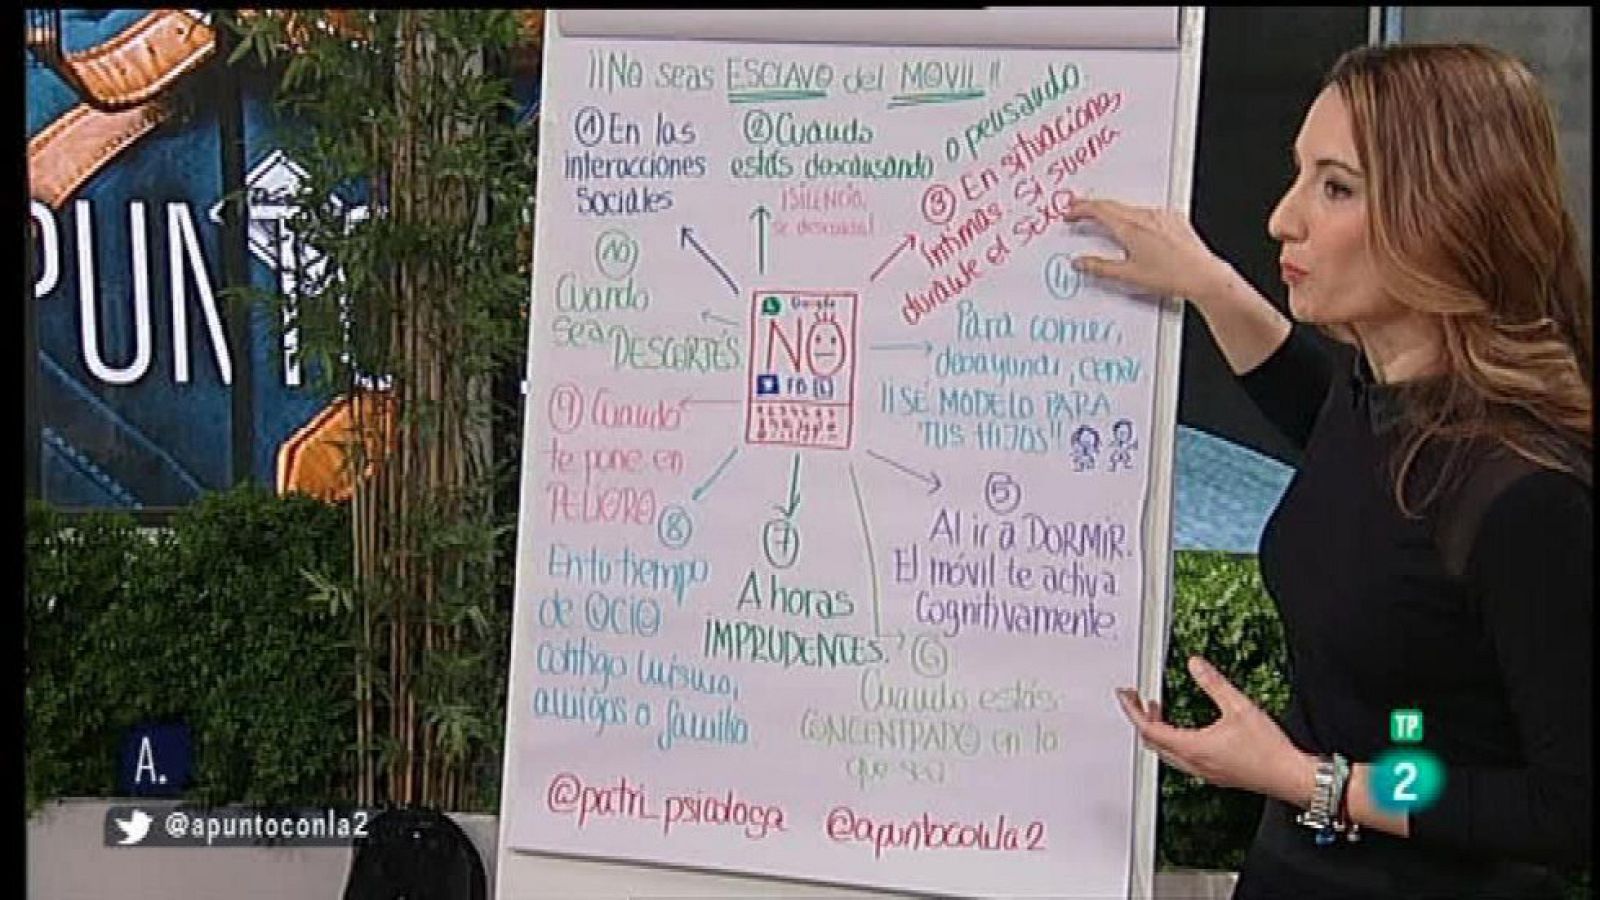 ¡¡No seas ESCLAVO del MOVIL!!
① En las
interacciones
Sociales
② Cuando
estás descansando o pensando
¡SILENCIO,
se descansa!
③ En situaciones
íntimas. Si suena
durante el sexo
④
Para comer,
desayunar, cenar
¡¡SÉ MODELO PARA
TUS HIJOS!!
⑤
Al ir a DORMIR.
El móvil te activa
Cognitivamente.
⑥
Cuando estás
CONCENTRADO en lo
que sea
⑦
A horas
IMPRUDENTES.
⑧
En tu tiempo
de OCIO
contigo mismo,
amigos o familia
⑨ Cuando
te pone en
PELIGRO
⑩
Cuando
sea DESCORTÉS
Google
NO
FB
@patri_psicologa @apuntoconla2
PUNT
A.
@apuntoconla2
TP
2